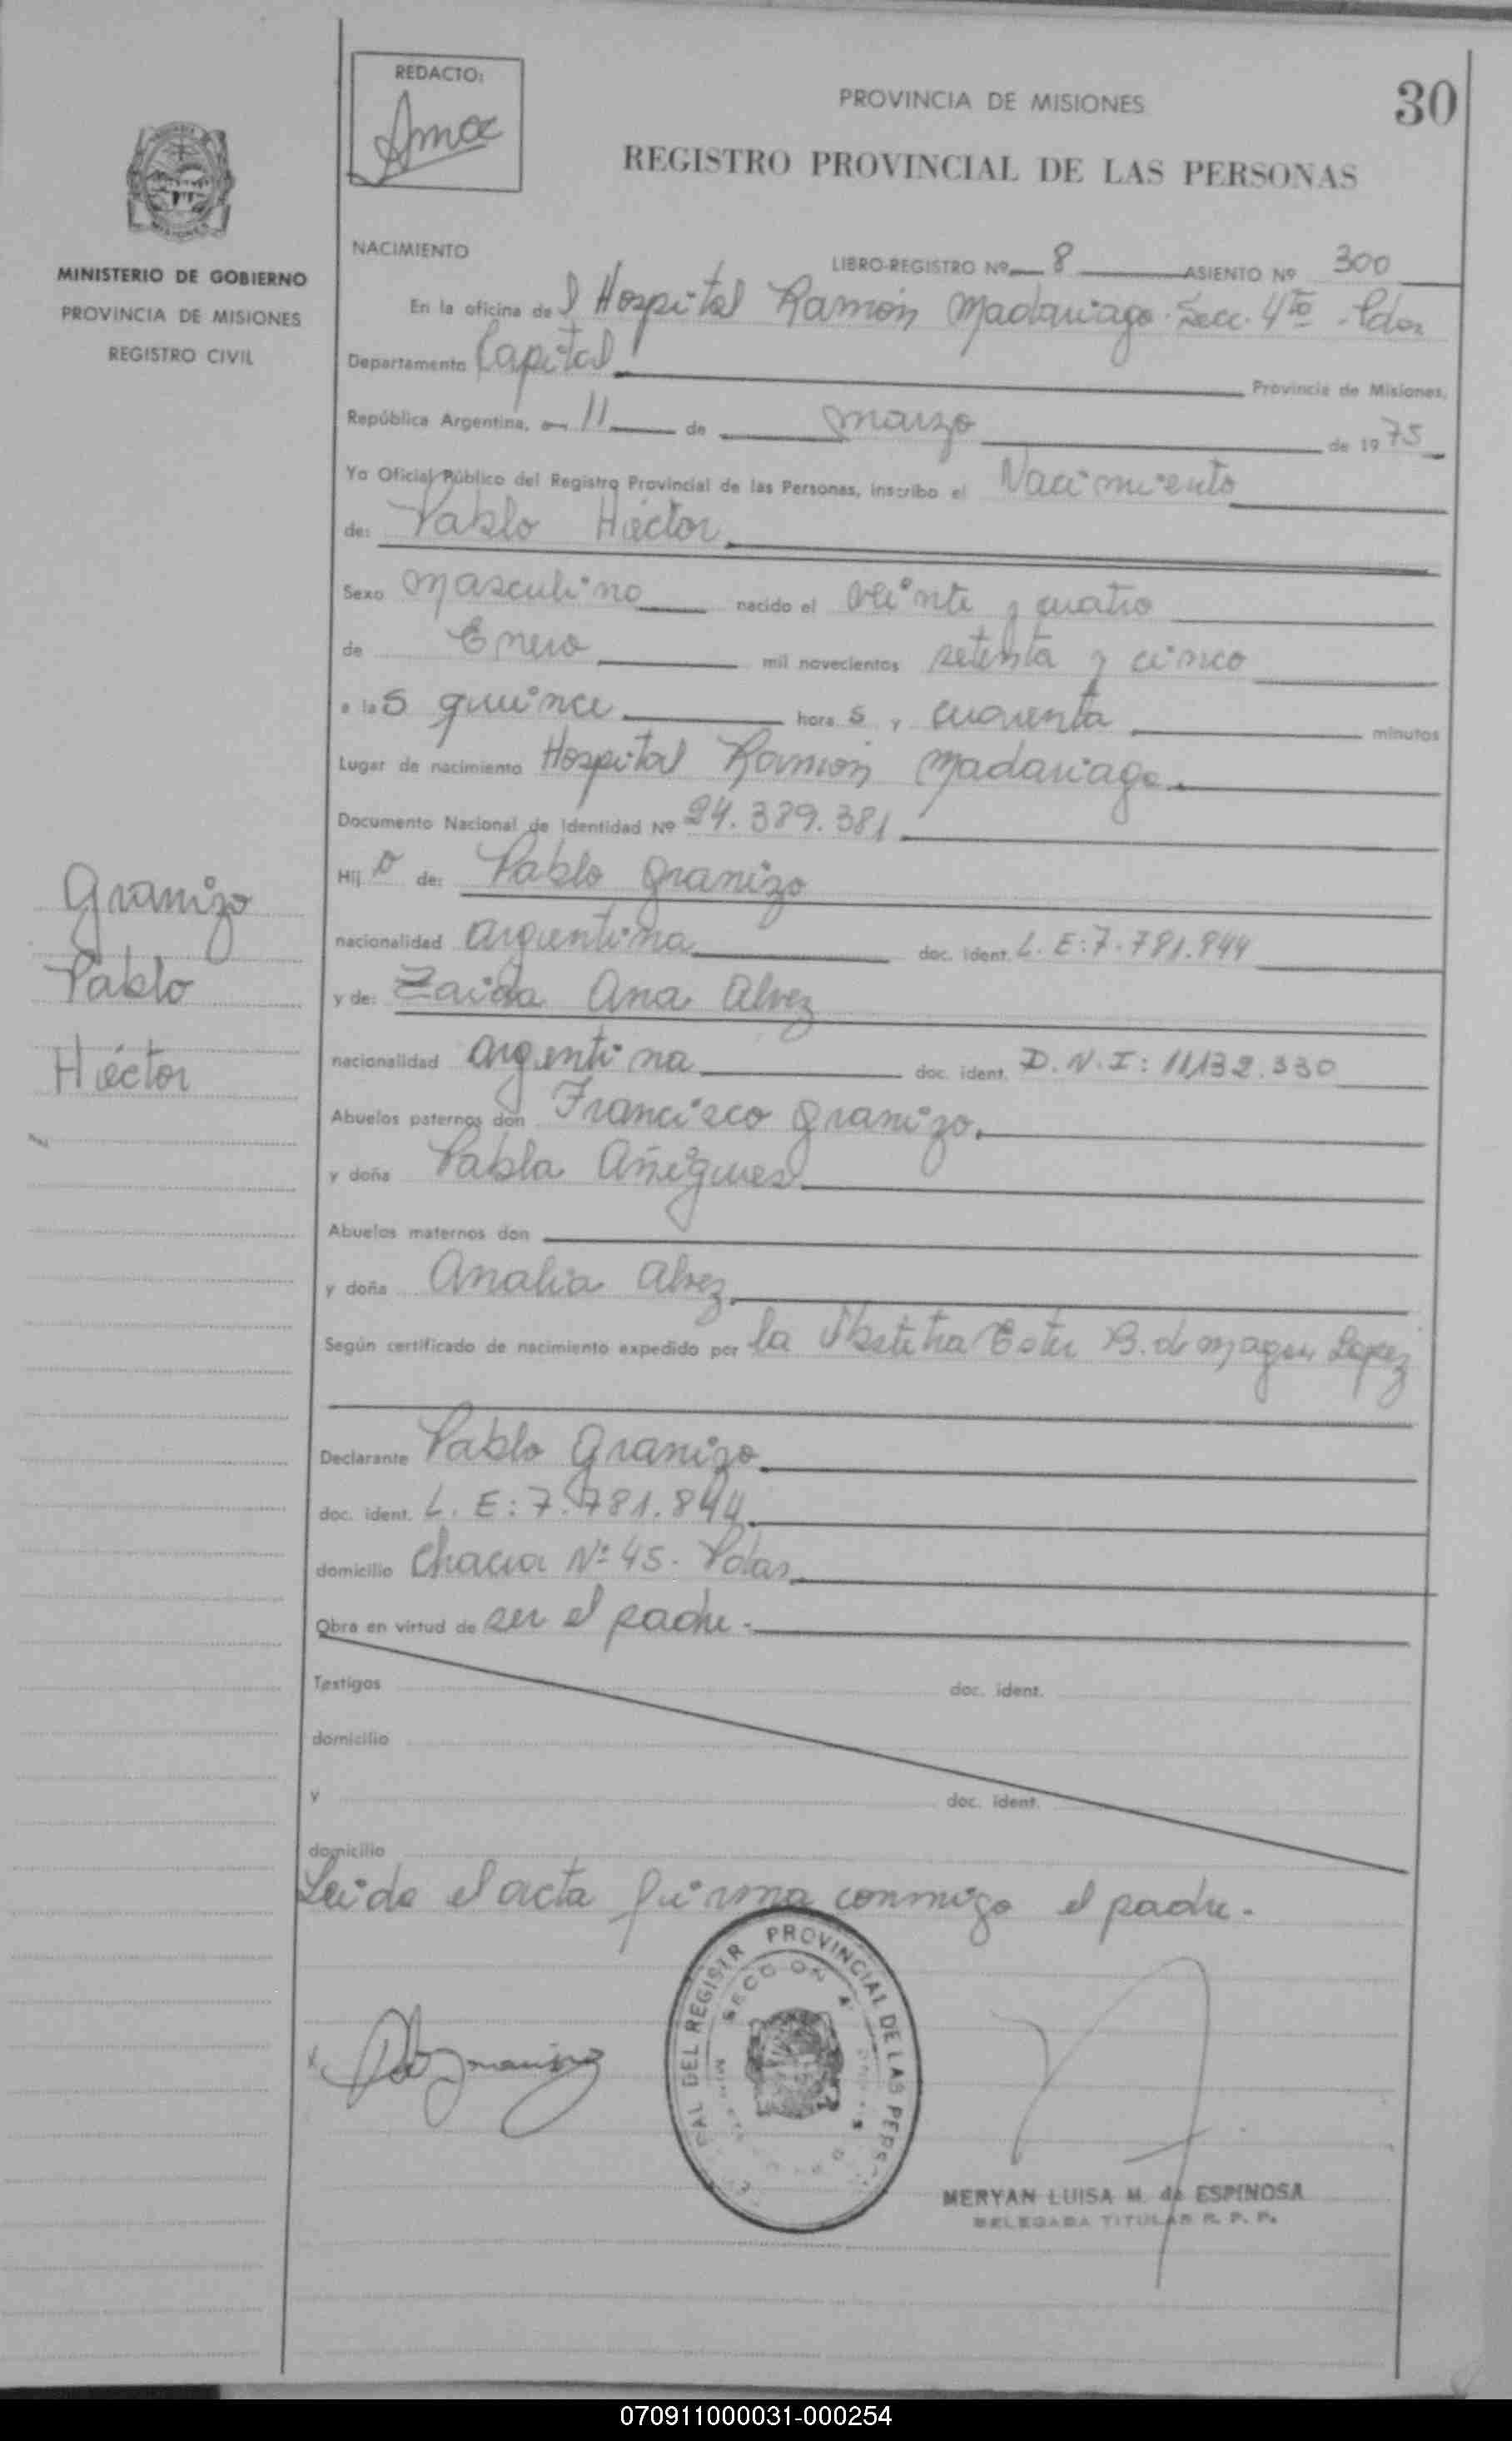 REDACTO:
PROVINCIA DE MISIONES
30
REGISTRO PROVINCIAL DE LAS PERSONAS
MINISTERIO DE GOBIERNO
PROVINCIA DE MISIONES
REGISTRO CIVIL
NACIMIENTO
LIBRO-REGISTRO Nº 8 ASIENTO Nº 300
En la oficina del Hospital Ramón Madariaga. Secc. 4ta - Pdas
Departamento Capital Provincia de Misiones,
República Argentina, a 11 de marzo de 1975
Yo Oficial Público del Registro Provincial de las Personas, inscribo el Nacimiento
de: Pablo Héctor
Sexo Masculino nacido el veinte y cuatro
de Enero mil novecientos setenta y cinco
a las quince horas y cuarenta minutos
Lugar de nacimiento Hospital Ramón Madariaga
Documento Nacional de Identidad Nº 24.389.381
Hijo de: Pablo Granizo
nacionalidad argentina doc. ident. L. E: 7.781.844
y de: Zaida Ana Alvez
nacionalidad argentina doc. ident. D. N. I: 11,132.330
Abuelos paternos don Francisco Granizo
y doña Pabla Añigues
Abuelos maternos don
y doña Analia Alvez
Según certificado de nacimiento expedido por la Obstetra Ester B. de Lopez
Declarante Pablo Granizo
doc. ident. L. E: 7.781.844
domicilio Chacra Nº 45. Pdas
Obra en virtud de ser el padre.
Testigos doc. ident.
domicilio
y doc. ident.
domicilio
Leida el acta firma conmigo el padre.
Granizo
Pablo
Héctor
PROVINCIAL DE LAS PERS
DEL REGISTR
SECCION 4
MERYAN LUISA M. de ESPINOSA
DELEGADA TITULAR R. P. P.
070911000031-000254